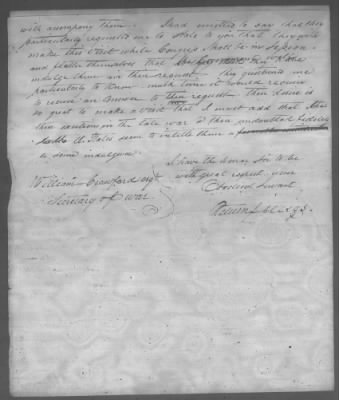 will accompany them. I had omitted to say that they
particularly requested me to state to you that they wish
make this visit while Congress shall be in Session
and flatter themselves that you
indulge them in their request. They questioned me
particularly to know much time it would require
to receive an answer to their request. Their desire is
so great to make a visit that I must add that
their conduct in the late war & their undoubted fidelity
to the U. States seem to entitle them
to some indulgence.
I have the honor Sir to be
with great respect your
Obedient Servant
Return J. Meigs
William Crawford Esqr
Secretary of War